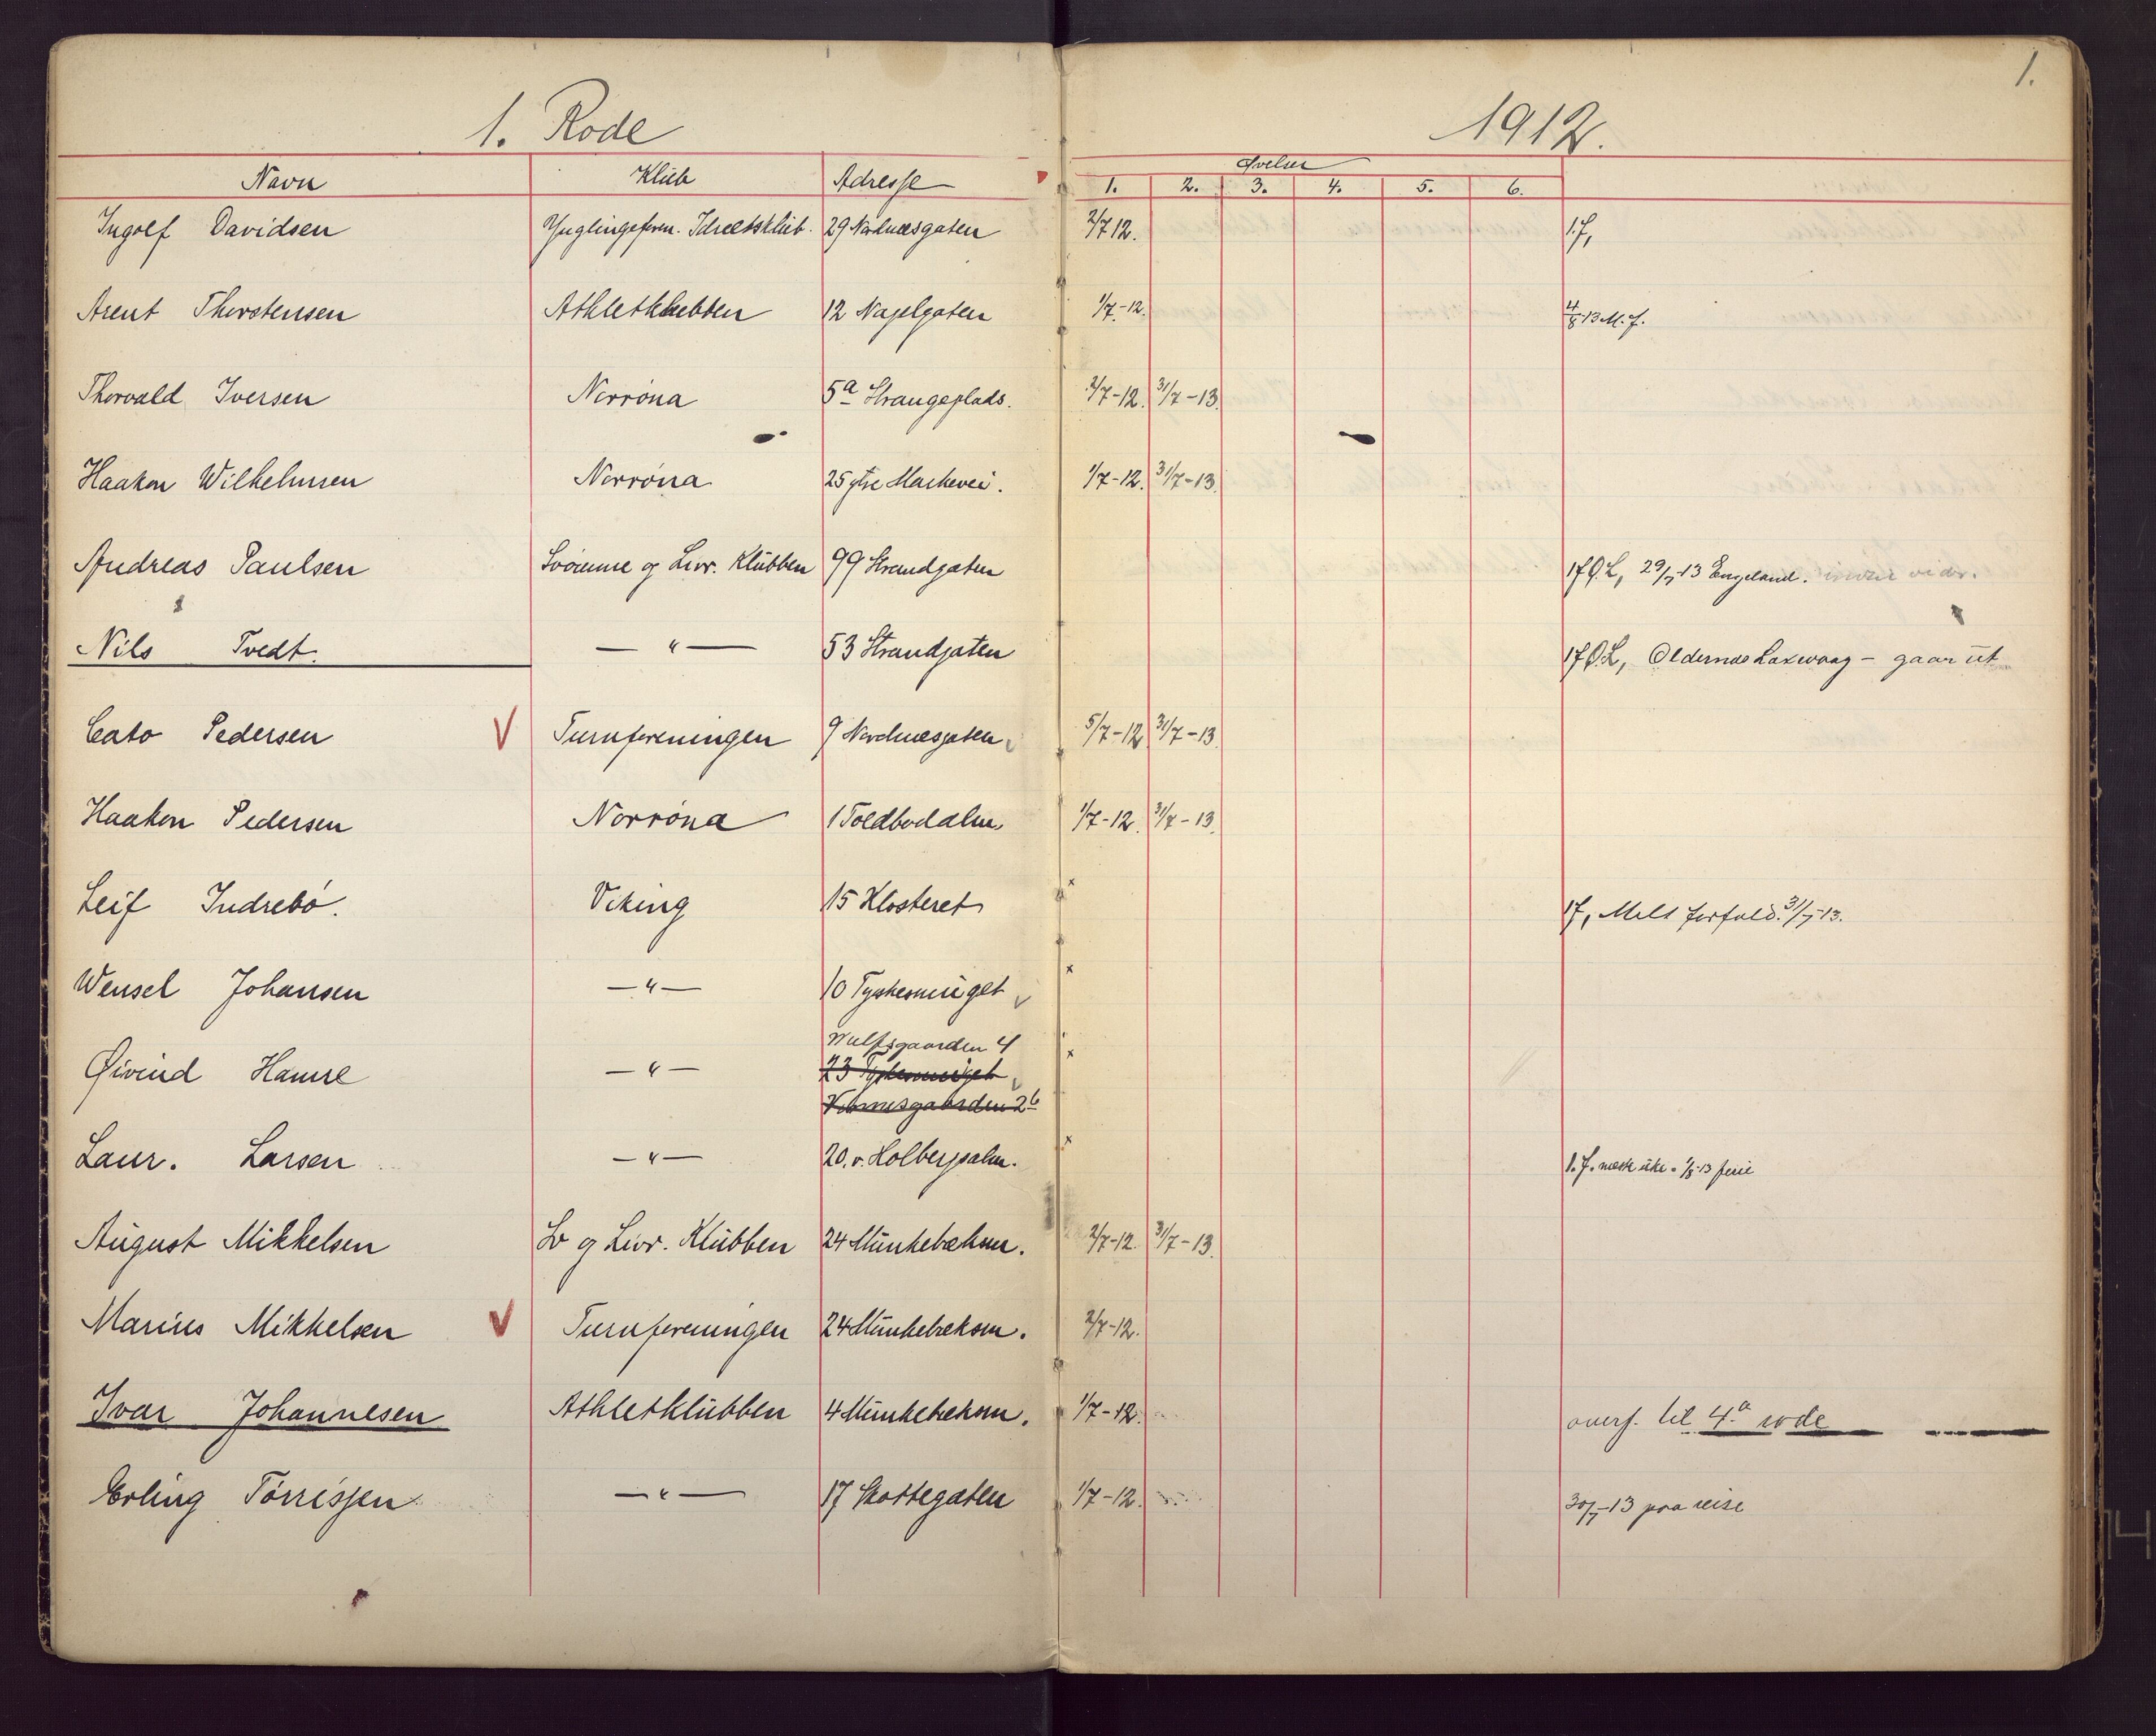 1.
1. Rode
1912.
Navn Klub Adresse
Øvelser
1. 2. 3. 4. 5. 6.
Ingolf Davidsen Ynglingeforen. Idrætsklub. 29 Nordnæsgaten 2/7 12. 1.f,
Arent Thorstensen Athletklubben 12 Nagelgaten 1/7-12. 4/8-13 M.f.
Thorvald Iversen Norrøna 5a Strangeplads. 2/7-12. 31/7-13.
Haakon Wilhelmsen Norrøna 25 ytre Markevei. 1/7-12. 31/7-13.
Andreas Paulsen Svømme og Livr. Klubben 99 Strandgaten 29/7-13 Engeland.
Nils Tvedt. —"— 53 Strandgaten Laxevaag - gaar ut
Cato Pedersen V Turnforeningen 9 Nordnæsgaten 5/7-12 31/7-13
Haakon Pedersen Norrøna 1 Toldbodalm. 1/7-12. 31/7-13.
Leif Indrebø. Viking 15 Klosteret x 1f, Meldt forfald. 31/7-13.
Wensel Johansen —"— 10 Tyskesmuget x
Wulfsgaarden 4
Øivind Hamre —"— 23 Tyskesmuget x
26
Laur. Larsen —"— 20. v. Holbergsalm. x 1.f. næste uke. 1/8-13 ferie
August Mikkelsen Sv og Livr. Klubben 24 Munkebækm. 2/7-12. 31/7-13.
Marius Mikkelsen V Turnforeningen 24 Munkebæksm. 2/7-12.
Ivar Johannesen Athletklubben 4 Munkebæksm. 1/7-12. overf. til 4.a rode
Erling Tørrissen —"— 17 Skottegaten 1/7-12. 30/7-13 paa reise